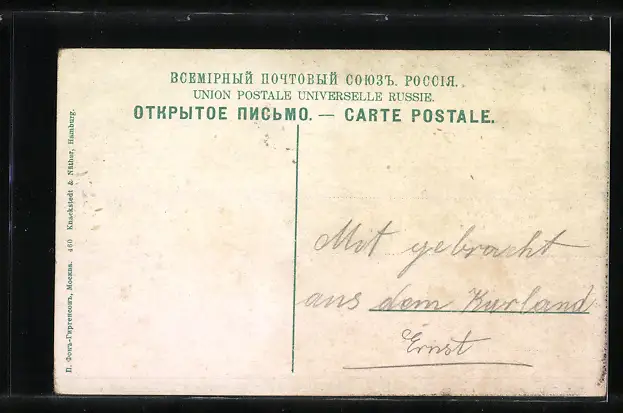 ВСЕМІРНЫЙ ПОЧТОВЫЙ СОЮЗЪ. РОССІЯ.
UNION POSTALE UNIVERSELLE RUSSIE.
ОТКРЫТОЕ ПИСЬМО. — CARTE POSTALE.
П. Фонъ-Гиргенсонъ, Москва. 460 Knackstedt & Näther, Hamburg.
Mit gebracht
aus dem Kurland
Ernst